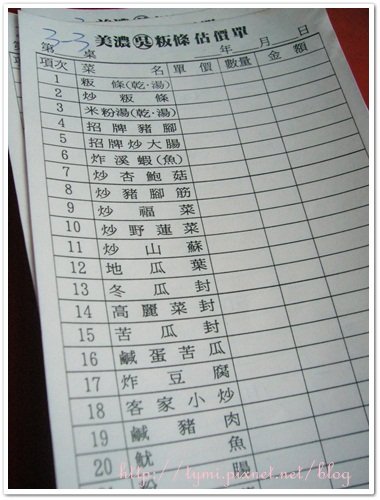 美濃吳粄條估價單
3-3
第 桌 年 月 日
項次 菜名 單價 數量 金額
1 粄條(乾·湯)
2 炒粄條
3 米粉湯(乾·湯)
4 招牌豬腳
5 招牌炒大腸
6 炸溪蝦(魚)
7 炒杏鮑菇
8 炒豬腳筋
9 炒福菜
10 炒野蓮菜
11 炒山蘇
12 地瓜葉
13 冬瓜封
14 高麗菜封
15 苦瓜封
16 鹹蛋苦瓜
17 炸豆腐
18 客家小炒
19 鹹豬肉
20 魷魚
腸
http://tymi.pixnet.net/blog